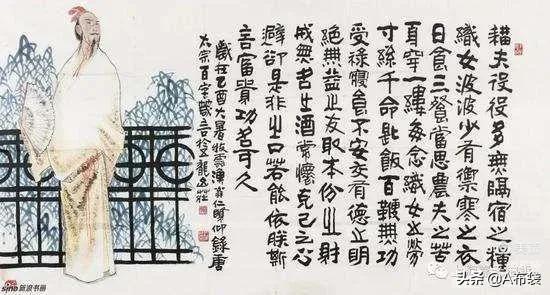 耕夫役役多無隔宿之糧
織女波波少有禦寒之衣
日食三餐當思農夫之苦
身穿一縷每念織女之勞
寸絲千命匙飯百鞭無功
受祿寢食不安交有德之朋
絕無益之友取本份之財
戒無名之酒常懷克己之心
避卻是非之口若能依朕斯
言富貴功名可久
歲在乙酉大暑 錄唐
太宗百字箴言
sina 新浪书画
头条 @A布袋